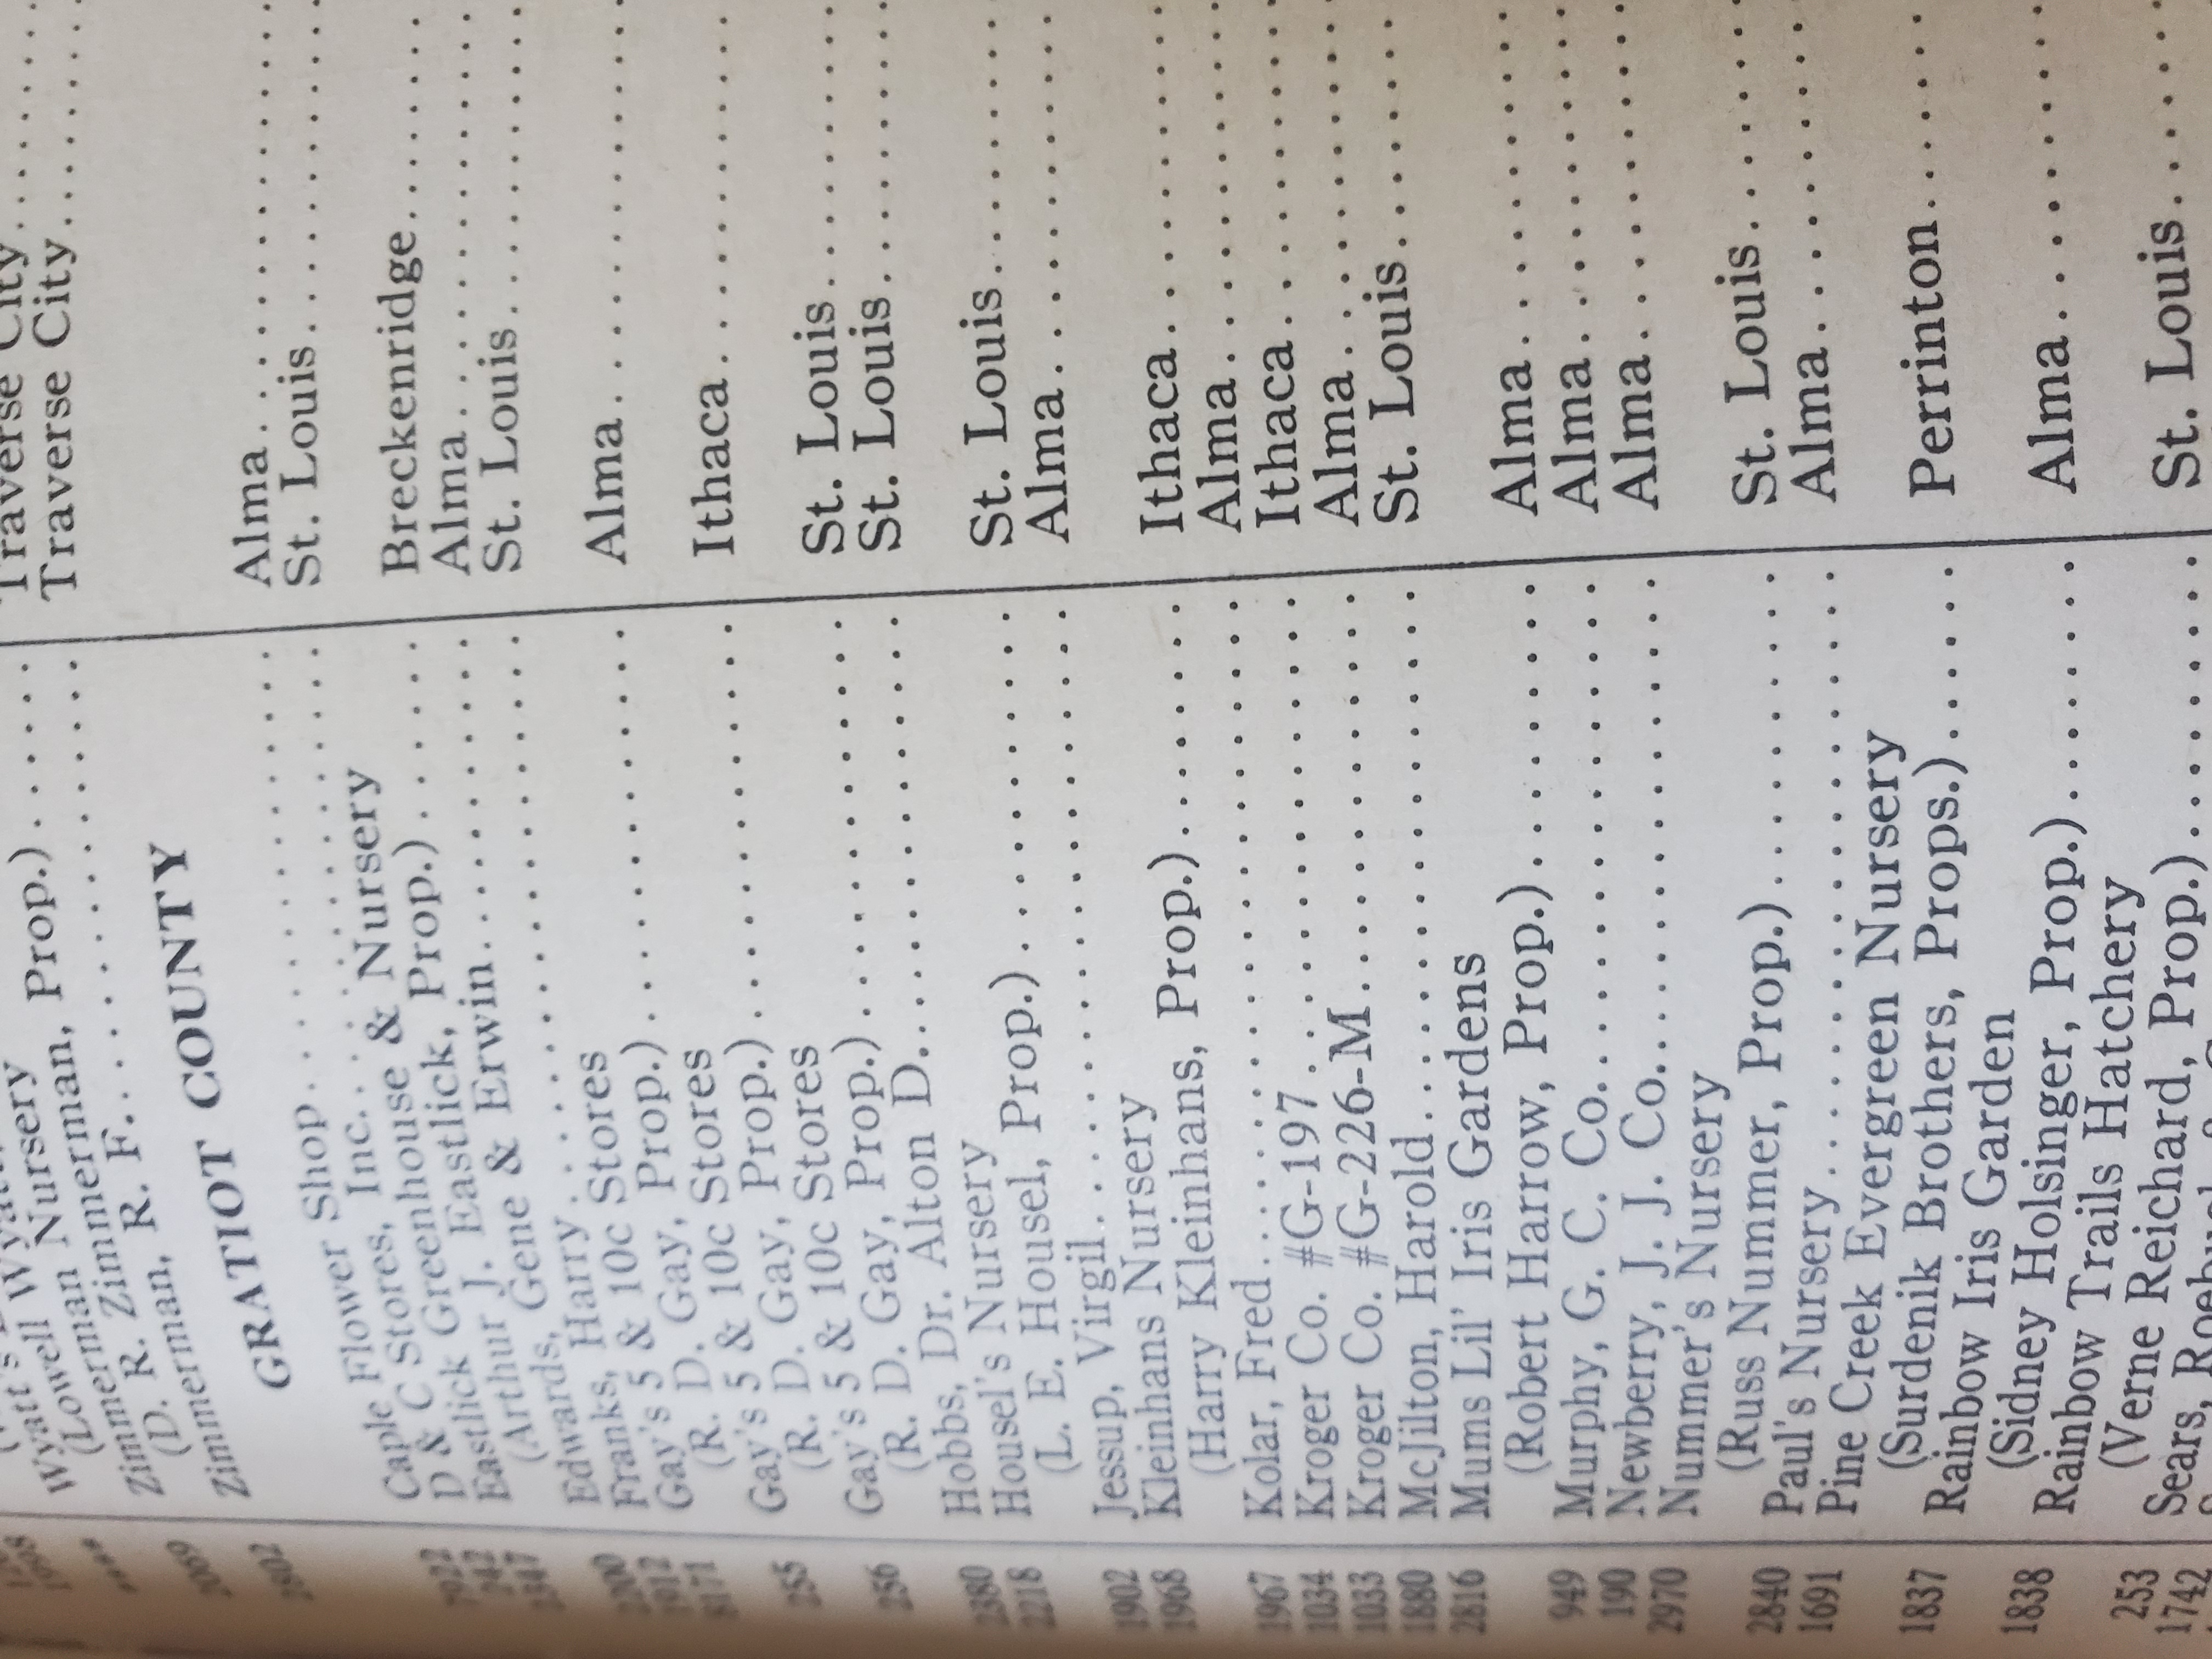 Wyatt Nursery
(Lowell Wyatt, Prop.) Traverse City
Zimmerman Nursery
(D. R. Zimmerman, Prop.) Traverse City
Zimmerman, R. F. Traverse City
GRATIOT COUNTY
Caple Flower Shop Alma
D & C Stores, Inc. St. Louis
Eastlick Greenhouse & Nursery
(Arthur J. Eastlick, Prop.) Breckenridge
Edwards, Gene & Erwin Alma
Franks, Harry St. Louis
Gay's 5 & 10c Stores
(R. D. Gay, Prop.) Alma
255 Gay's 5 & 10c Stores
(R. D. Gay, Prop.) Ithaca
256 Gay's 5 & 10c Stores
(R. D. Gay, Prop.) St. Louis
2380 Hobbs, Dr. Alton D. St. Louis
2218 Housel's Nursery
(L. E. Housel, Prop.) St. Louis
1902 Jessup, Virgil Alma
1968 Kleinhans Nursery
(Harry Kleinhans, Prop.) Ithaca
1967 Kolar, Fred Alma
1034 Kroger Co. #G-197 Ithaca
1033 Kroger Co. #G-226-M Alma
1880 McJilton, Harold St. Louis
2816 Mums Lil' Iris Gardens
(Robert Harrow, Prop.) Alma
949 Murphy, G. C. Co. Alma
190 Newberry, J. J. Co. Alma
2970 Nummer's Nursery
(Russ Nummer, Prop.) St. Louis
2840 Paul's Nursery Alma
1691 Pine Creek Evergreen Nursery
(Surdenik Brothers, Props.) Perrinton
1837 Rainbow Iris Garden
(Sidney Holsinger, Prop.) Alma
1838 Rainbow Trails Hatchery
(Verne Reichard, Prop.) St. Louis
253 Sears,
1742